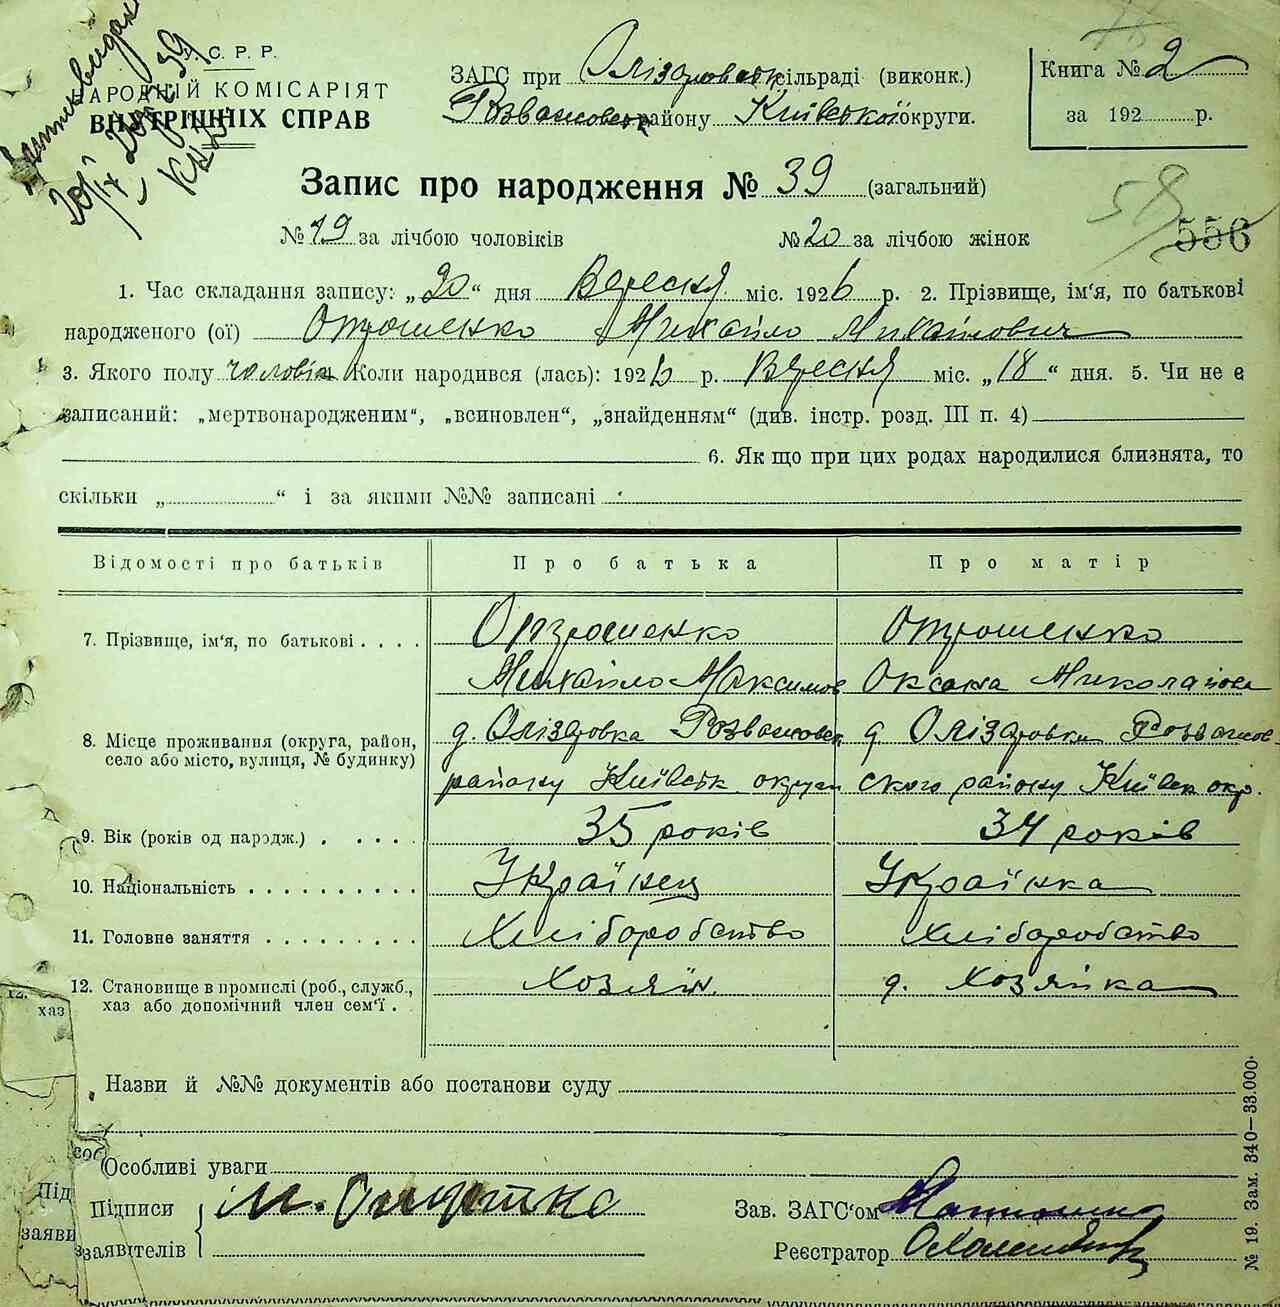 С. Р. Р.
НАРОДНІЙ КОМІСАРІЯТ
ВНУТРІШНІХ СПРАВ
ЗАГС при Олізаровській сільраді (виконк.)
Розважевськ району Київської округи.
Книга № 2
за 192 р.
Запис про народження № 39 (загальний)
№ 19 за лічбою чоловіків № 20 за лічбою жінок
58 556
1. Час складання запису: „20“ дня Вересня міс. 1926 р. 2. Прізвище, ім'я, по батькові
народженого (ої) Опрошенко Михайло Михайлович
3. Якого полу чоловік Коли народився (лась): 1926 р. Вересня міс. „18“ дня. 5. Чи не є
записаний: „мертвонародженим“, „всиновлен“, „знайденням“ (див. інстр. розд. III п. 4)
6. Як що при цих родах народилися близнята, то
скільки „ “ і за якими №№ записані
Відомості про батьків Про батька Про матір
7. Прізвище, ім'я, по батькові . . . . Опрошенко Опрошенко
Михайло Максимов Оксана Миколаївна
8. Місце проживання (округа, район, село або місто, вулиця, № будинку) д. Олізаровка Розважевск д. Олізаровки Розважев
району Київськ округи ского району Київск окр.
9. Вік (років од народж.) . . . . . 35 років 34 років
10. Національність . . . . . . . . . . Українец Українка
11. Головне заняття . . . . . . . . . Хліборобство Хліборобство
12. Становище в промислі (роб., службв., хаз або допомічний член сем'ї . Хозяїн. д. Хозяйка
хаз
Назви й №№ документів або постанови суду
Особливі уваги
Під
заяви
Підписи
заявителів
Зав. ЗАГС'ом
Реєстратор
№ 19. Зам. 340—33.000.